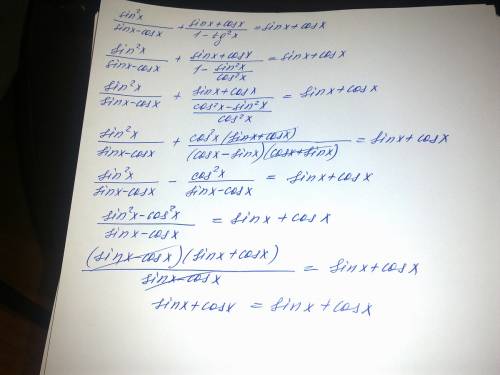 sin²x/(sinx-cosx) + (sinx+cosx)/(1-tg²x) = sinx+cosx
sin²x/(sinx-cosx) + (sinx+cosx)/(1-sin²x/cos²x) = sinx+cosx
sin²x/(sinx-cosx) + (sinx+cosx)/((cos²x-sin²x)/cos²x) = sinx+cosx
sin²x/(sinx-cosx) + cos²x(sinx+cosx)/((cosx-sinx)(cosx+sinx)) = sinx+cosx
sin²x/(sinx-cosx) - cos²x/(sinx-cosx) = sinx+cosx
(sin²x-cos²x)/(sinx-cosx) = sinx+cosx
(sinx-cosx)(sinx+cosx)/(sinx-cosx) = sinx+cosx
sinx+cosx = sinx+cosx